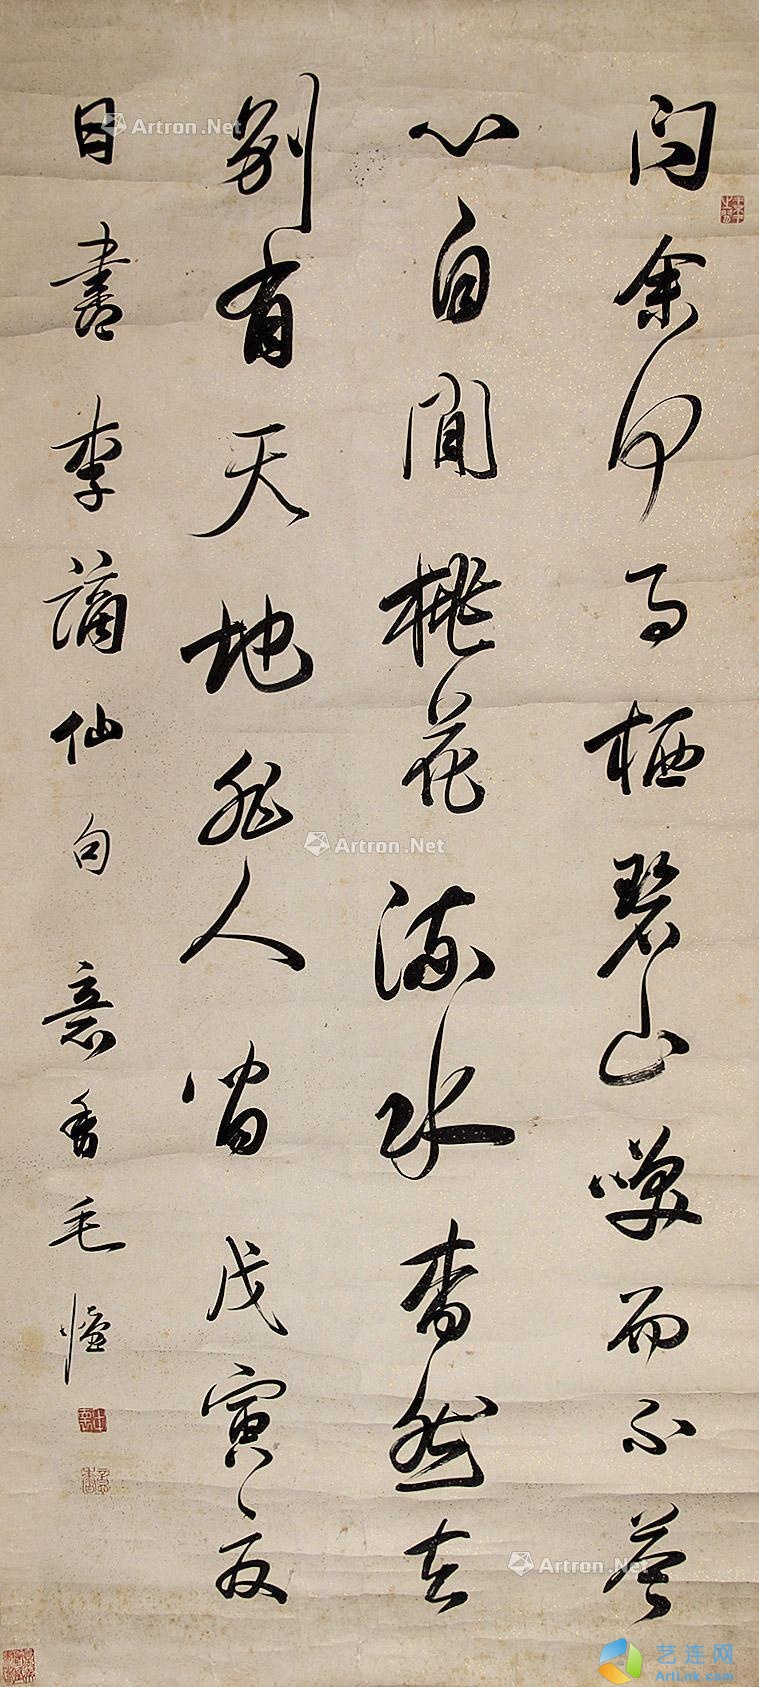 問余何事栖碧山咲而不答
心自閒桃花流水杳然去
別有天地非人間戊寅夏
日書李謫仙句意香毛
Artron.Net
Artron.Net
Artron.Net
艺连网
ArtLink.com